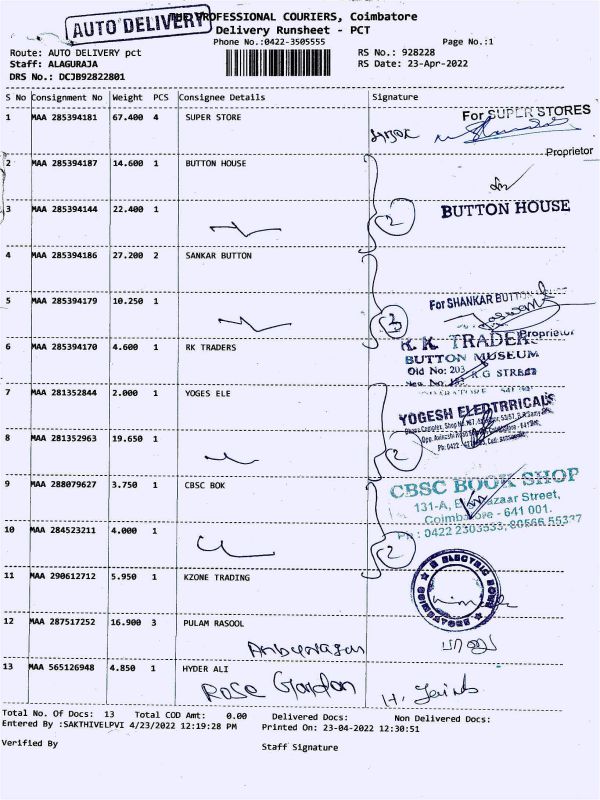 AUTO DELIVERY
THE PROFESSIONAL COURIERS, Coimbatore
Delivery Runsheet - PCT
Phone No.:0422-3505555 Page No.:1
Route: AUTO DELIVERY pct RS No.: 928228
Staff: ALAGURAJA RS Date: 23-Apr-2022
DRS No.: DCJB92822801
S No Consignment No Weight PCS Consignee Details Signature
1 MAA 285394181 67.400 4 SUPER STORE
For SUPER STORES
Proprietor
2 MAA 285394187 14.600 1 BUTTON HOUSE
3 MAA 285394144 22.400 1
2
BUTTON HOUSE
4 MAA 285394186 27.200 2 SANKAR BUTTON
5 MAA 285394179 10.250 1
3
For SHANKAR BUTTON HOUSE
Proprietor
6 MAA 285394170 4.600 1 RK TRADERS
R.K. TRADER
BUTTON MUSEUM
Old No: 203
R G STREET
7 MAA 281352844 2.000 1 YOGES ELE
YOGESH ELEDTRRICALS
8 MAA 281352963 19.650 1
2
9 MAA 288079627 3.750 1 CBSC BOK
CBSC BOOK SHOP
131-A, Bazaar Street,
Coimbatore - 641 001.
Ph : 0422 2303533, 80566 55337
10 MAA 284523211 4.000 1
2
11 MAA 290612712 5.950 1 KZONE TRADING
ELECTRIC
COIMBATORE
12 MAA 287517252 16.900 3 PULAM RASOOL
13 MAA 565126948 4.850 1 HYDER ALI
Rose Gardon
Total No. Of Docs: 13 Total COD Amt: 0.00 Delivered Docs: Non Delivered Docs:
Entered By :SAKTHIVELPVI 4/23/2022 12:19:28 PM Printed On: 23-04-2022 12:30:51
Verified By Staff Signature